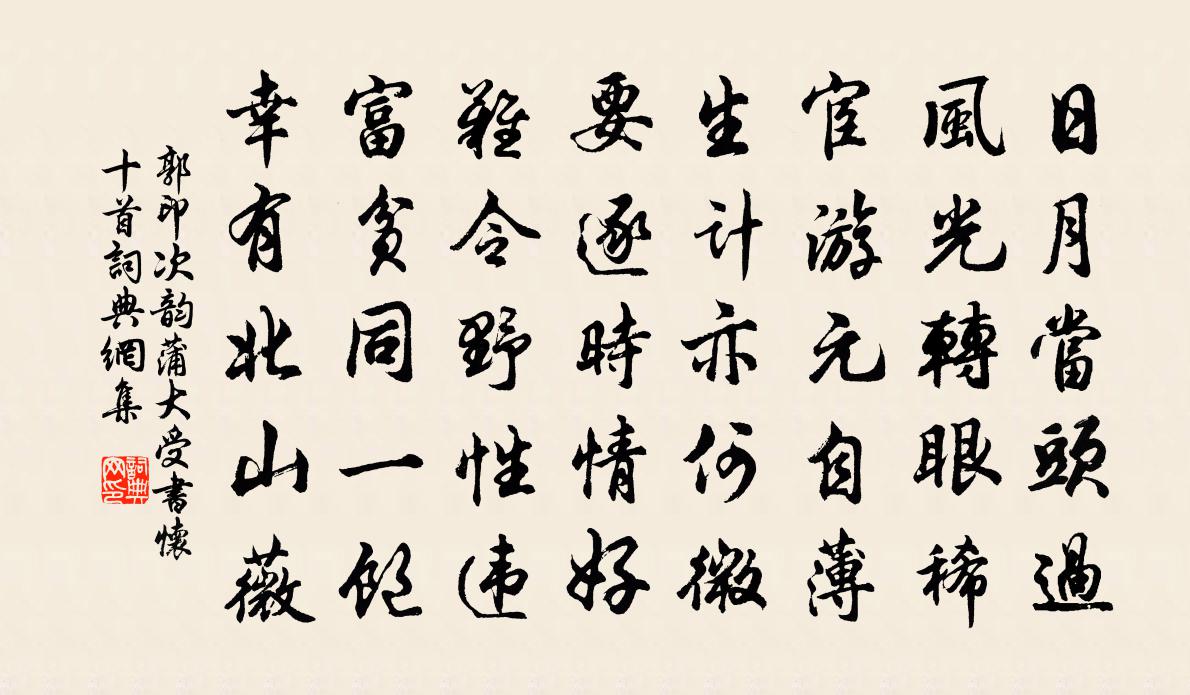 日月當頭過
風光轉眼稀
宦游元自薄
生計亦何微
要逐時情好
難令野性违
富貧同一飽
幸有北山薇
郭印次韵蒲大受書懷
十首詞典網集
詞典
网印